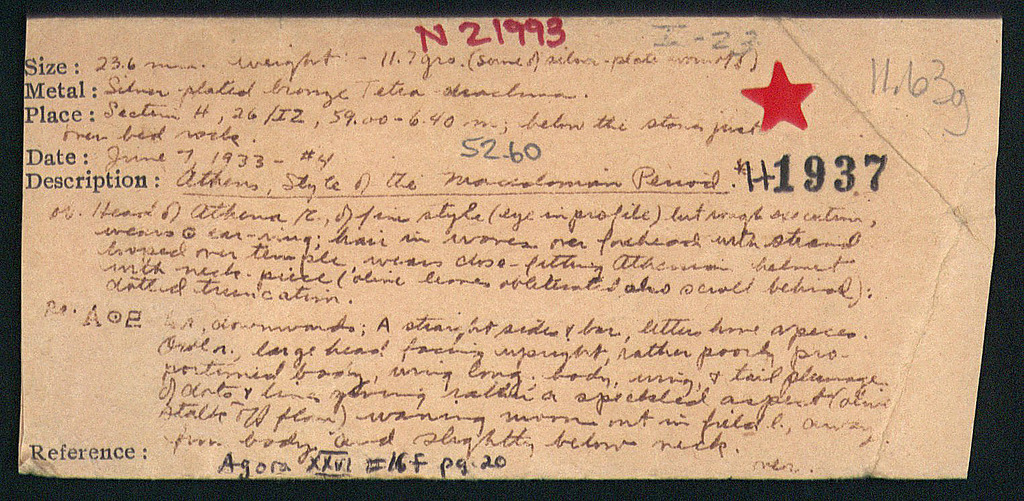 N 21993
I-23
Size : 23.6 mm. weight - 11.7 grs. (some of silver-plate worn off)
11.63g
Metal : Silver-plated bronze Tetra-drachma.
Place : Section H, 26/IZ, 59.00-6.40 m; below the stones just
over bed rock.
52.60
Date : June 7, 1933 - #4
Description : Athens, Style of the Macedonian Period.
H1937
ob. Head of Athena r., of fine style (eye in profile) but rough execution,
wears ear-ring; hair in waves over forehead with strand
looped over temple, wears close-fitting Athenian helmet
with neck-piece (olive leaves obliterated also scroll behind);
dotted truncation.
ΑΘΕ downwards; A straight sides & bar, letters have apices.
Owl r., large head facing upright, rather poorly pro-
portioned body, wing long; body, wing, & tail plumage
of dots & lines giving rather a speckled aspect (olive
stalk off flan) waning moon out in field l., away
from body and slightly below neck.
Reference : Agora XXVI =16f pg. 20